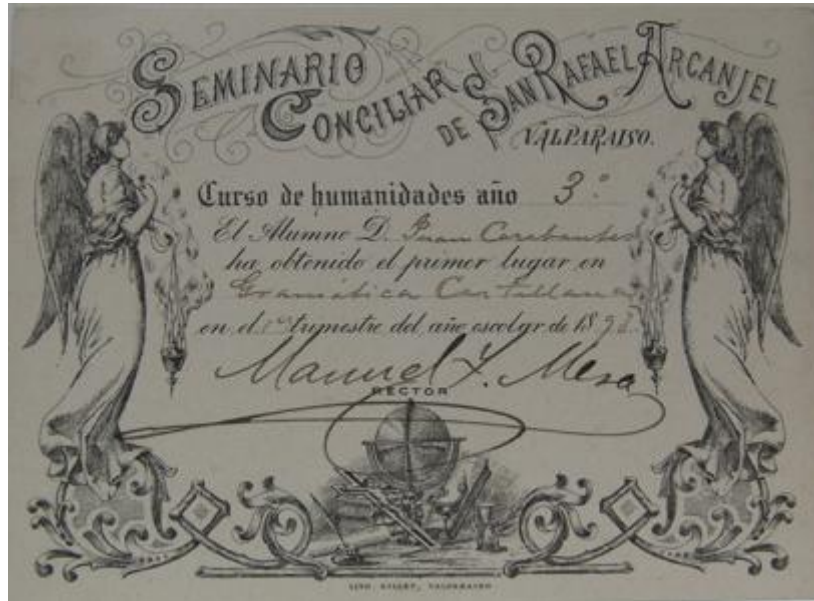 SEMINARIO
CONCILIAR DE SAN RAFAEL ARCANJEL
VALPARAISO.
Curso de humanidades año 3º
El Alumno D. Juan
ha obtenido el primer lugar en
Gramática Castellana
en el 1er trimestre del año escolar de 189
Manuel Y. Mesa
RECTOR
LITO. GILLET, VALPARAISO